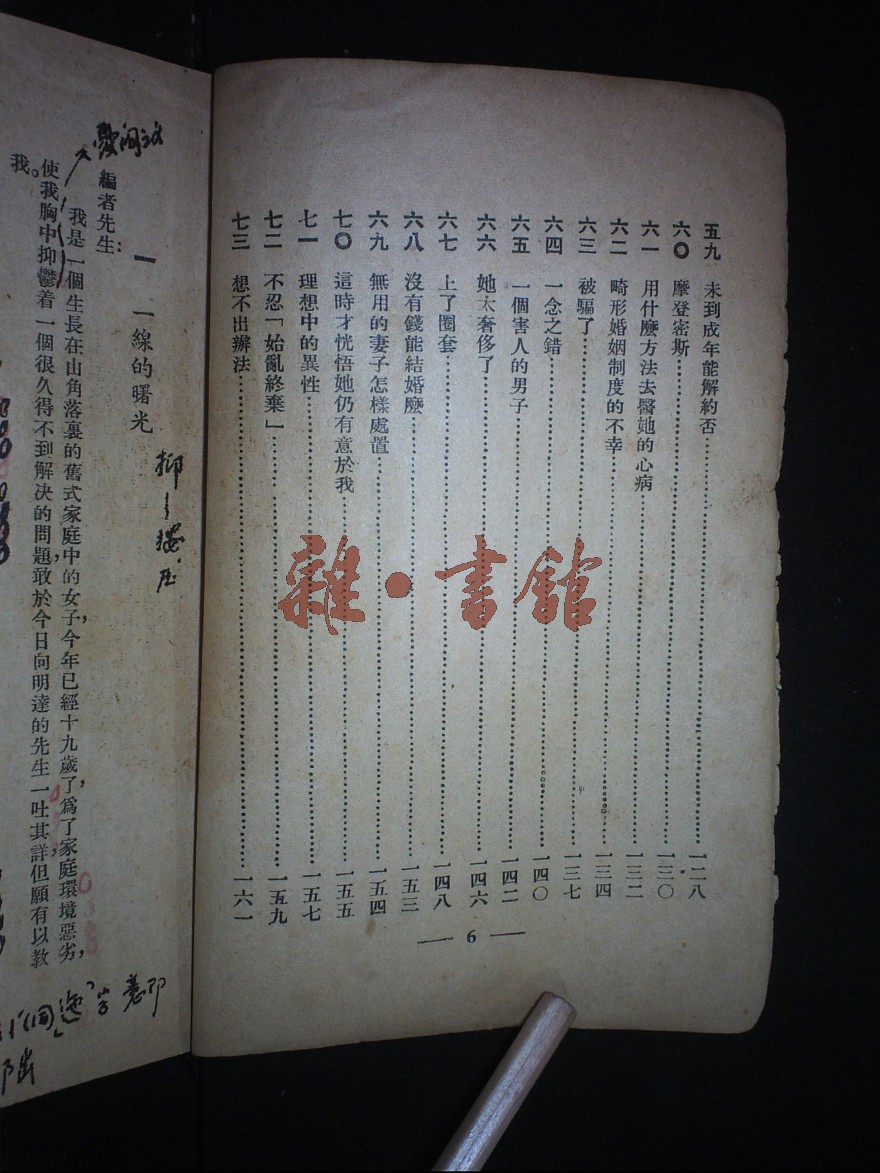 五九 未到成年能解約否⋯⋯一二八
六〇 摩登密斯⋯⋯一三〇
六一 用什麼方法去醫她的心病⋯⋯一三二
六二 畸形婚姻制度的不幸⋯⋯一三四
六三 被騙了⋯⋯一三七
六四 一念之錯⋯⋯一四〇
六五 一個害人的男子⋯⋯一四二
六六 她太奢侈了⋯⋯一四六
六七 上了圈套⋯⋯一四八
六八 沒有錢能結婚麼⋯⋯一五三
六九 無用的妻子怎樣處置⋯⋯一五四
七〇 這時才恍悟她仍有意於我⋯⋯一五五
七一 理想中的異性⋯⋯一五七
七二 不忍「始亂終棄」⋯⋯一五九
七三 想不出辦法⋯⋯一六一
— 6 —
雜·書館
一 一線的曙光
編者先生：
我是一個生長在山角落裏的舊式家庭中的女子，今年已經十九歲了，爲了家庭環境惡劣，
使我胸中抑鬱着一個很久得不到解決的問題，敢於今日向明達的先生一吐其詳，但願有以教
我。